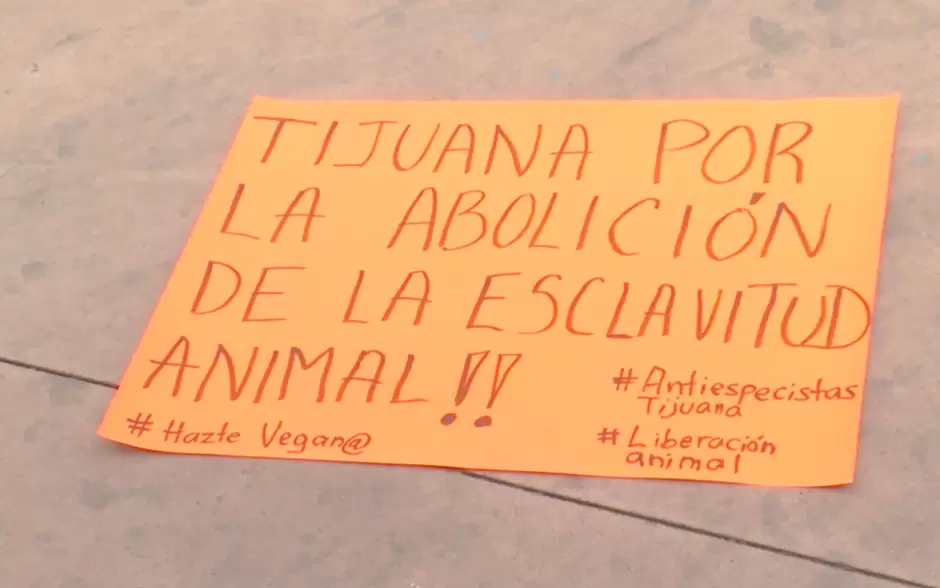 TIJUANA POR
LA ABOLICIÓN
DE LA ESCLAVITUD
ANIMAL!!
#Antiespecistas
Tijuana
# Hazte Vegan@
#Liberación
animal